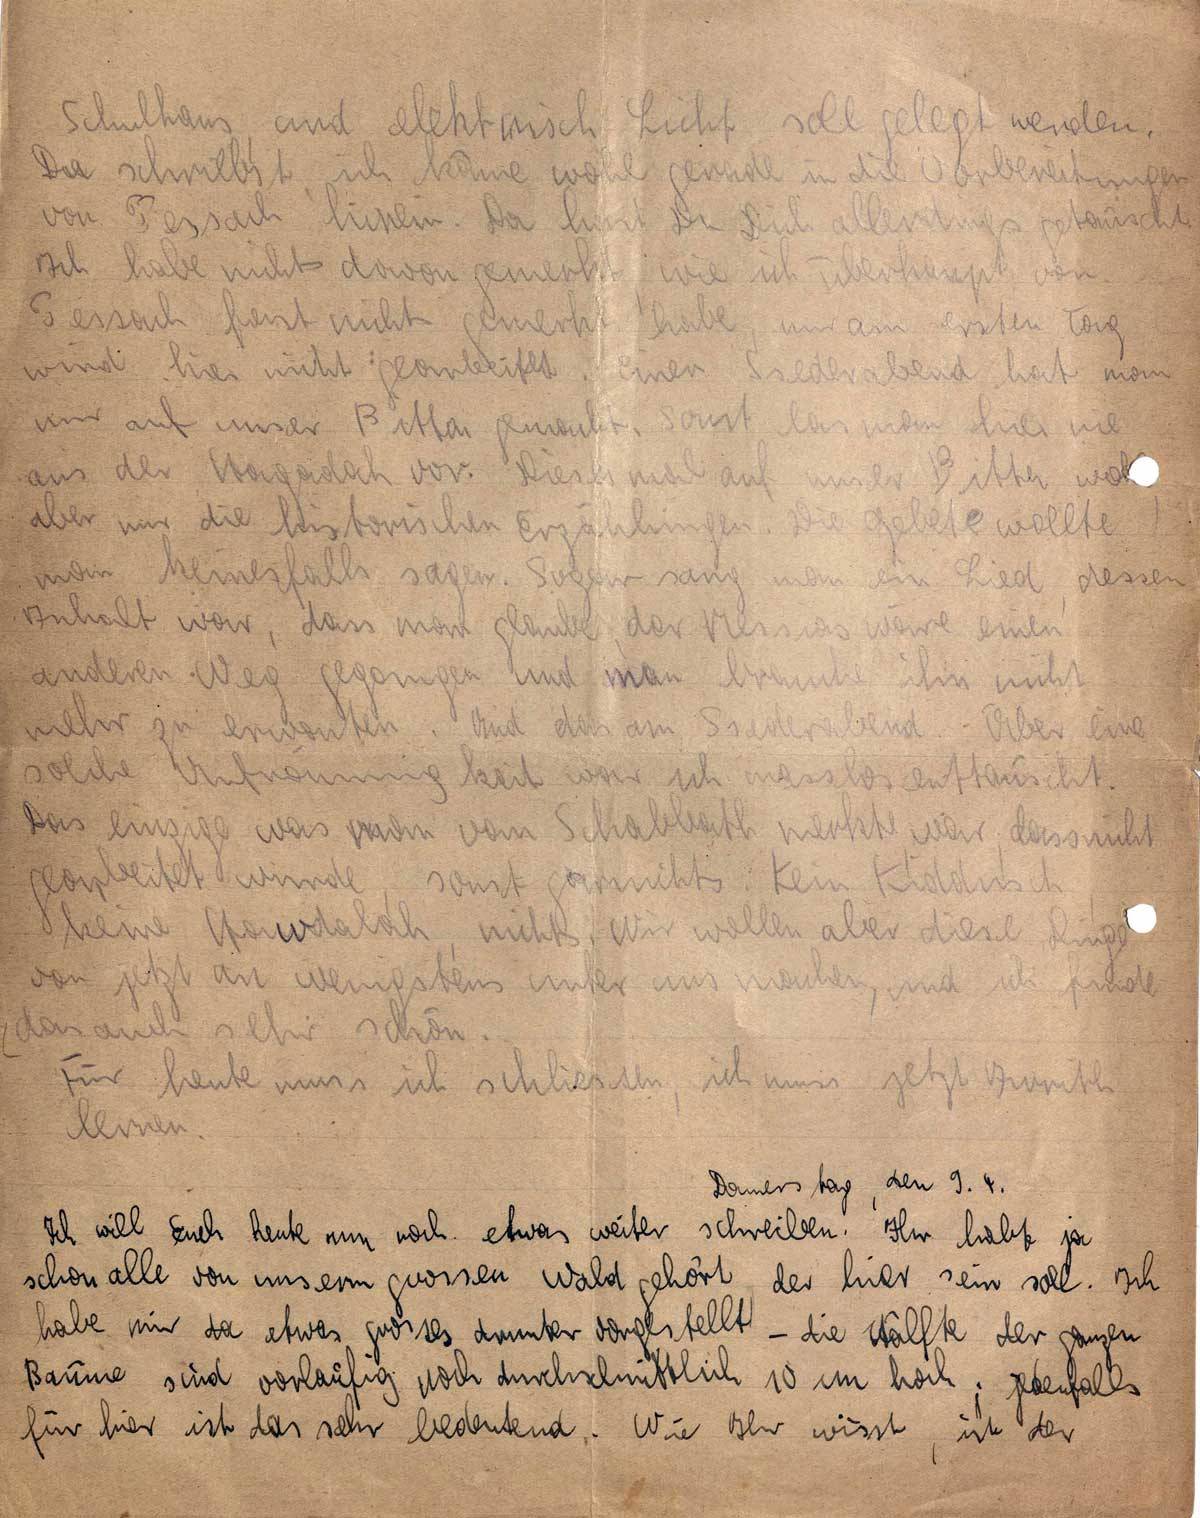 Schulhaus und elektrisch Licht soll gelegt werden.
Du schreibst, ich käme wohl gerade in die Vorbereitungen
von Pessach hinein. Da hast Du Dich allerdings getäuscht.
Ich habe nichts davon gemerkt wie ich überhaupt von
Pessach fast nichts gemerkt habe, nur am ersten Tag
wird hier nicht gearbeitet. Einen Ssederabend hat man
nur auf unser Bitten gemacht. Sonst las man hier nie
aus der Hagadah vor. Diesesmal auf unser Bitten wohl
aber nur die historischen Erzählungen. Die Gebete wollte
man keinesfalls sagen. Sogar sang man ein Lied, dessen
Inhalt war, dass man glaube der Messias wäre einen
anderen Weg gegangen und man brauche ihn nicht
mehr zu erwarten. Und das am Ssederabend. - Über eine
solche Unfrömmigkeit war ich masslos enttäuscht.
Das einzige was man vom Schabbath merkte war, dass nicht
gearbeitet wurde, sonst garnichts. Kein Kiddusch,
keine Hawdalah, nichts. Wir wollen aber diese Dinge
von jetzt an wenigstens unter uns machen, und ich finde
das auch sehr schön.
Für heute muss ich schliessen, ich muss jetzt Iwrith
lernen.
Donnerstag, den 9. 4.
Ich will Euch heute nun noch etwas weiter schreiben. Ihr habt ja
schon alle von unserm grossen Wald gehört der hier sein soll. Ich
habe mir da etwas grosses drunter vorgestellt - die Hälfte der ganzen
Bäume sind vorläufig noch durchschnittlich 10 cm hoch, jedenfalls
für hier ist das sehr bedeutend. Wie Ihr wisst, ist der